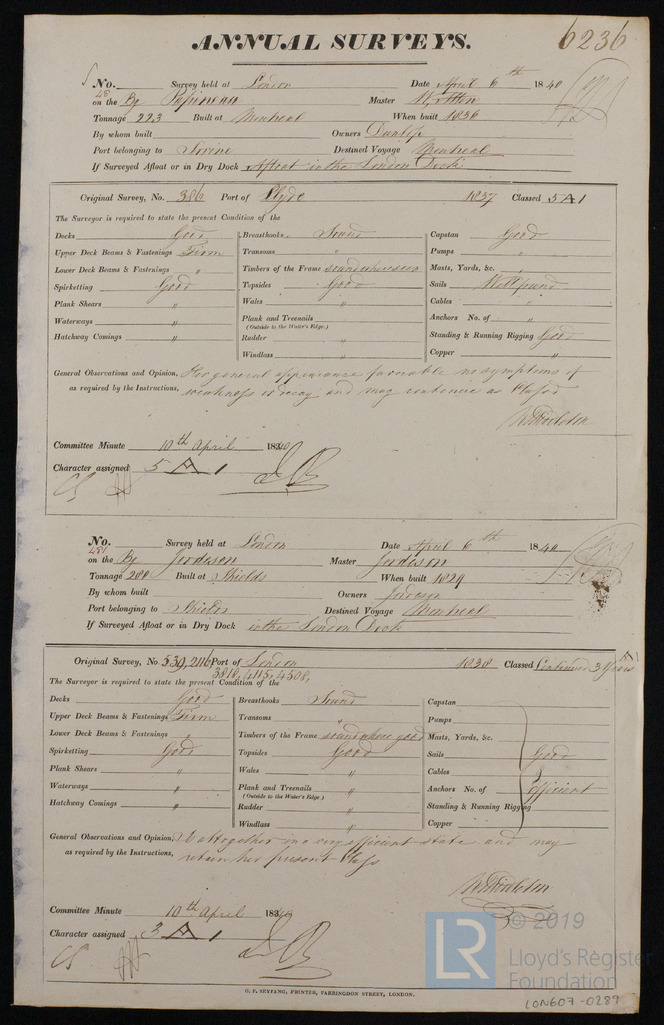 ANNUAL SURVEYS.
6236
No. 48 Survey held at London Date April 6th 1840
on the Bg Papineau Master
Tonnage 223 Built at Montreal When built 1836
By whom built Owners Dunlop
Port belonging to Irvine Destined Voyage Montreal
If Surveyed Afloat or in Dry Dock Afloat in the London Dock
Original Survey, No. 386 Port of Clyde 1837 Classed 5 A 1
The Surveyor is required to state the present Condition of the
Decks Good Breasthooks Sound Capstan Good
Upper Deck Beams & Fastenings Firm Transoms " Pumps "
Lower Deck Beams & Fastenings " Timbers of the Frame Masts, Yards, &c. "
Spirketting Good Topsides Good Sails Well found
Plank Shears " Wales " Cables "
Waterways " Plank and Treenails " Anchors No. of "
(Outside to the Water's Edge.)
Hatchway Comings " Rudder " Standing & Running Rigging Good
Windlass " Copper "
General Observations and Opinion, Her general appearance favorable no symptoms of
as required by the Instructions, weakness or decay and may continue as Classed
Committee Minute 10th April 1840
Character assigned 5 A 1
No. 481 Survey held at London Date April 6th 1840
on the Bg Jordeson Master Jordeson
Tonnage 200 Built at Shields When built 1829
By whom built Owners Jordeson
Port belonging to Shields Destined Voyage Montreal
If Surveyed Afloat or in Dry Dock in the London Dock
Original Survey, No 539, 2116 Port of London 1838 Classed Continued 3 Years A1
3818, 4115, 4508,
The Surveyor is required to state the present Condition of the
Decks Good Breasthooks Sound Capstan
Upper Deck Beams & Fastenings Firm Transoms " Pumps
Lower Deck Beams & Fastenings " Timbers of the Frame sound where seen Masts, Yards, &c.
Spirketting Good Topsides Good Sails Good
Plank Shears " Wales " Cables &
Waterways " Plank and Treenails " Anchors No. of Efficient
(Outside to the Water's Edge.)
Hatchway Comings " Rudder " Standing & Running Rigging
Windlass " Copper
General Observations and Opinion, Is altogether in a very efficient state and may
as required by the Instructions, retain her present Class
Committee Minute 10th April 1840
Character assigned 3 A 1
G. F. SEYFANG, PRINTER, FARRINGDON STREET, LONDON.
LR © 2019
Lloyd's Register
Foundation
LON607-0289